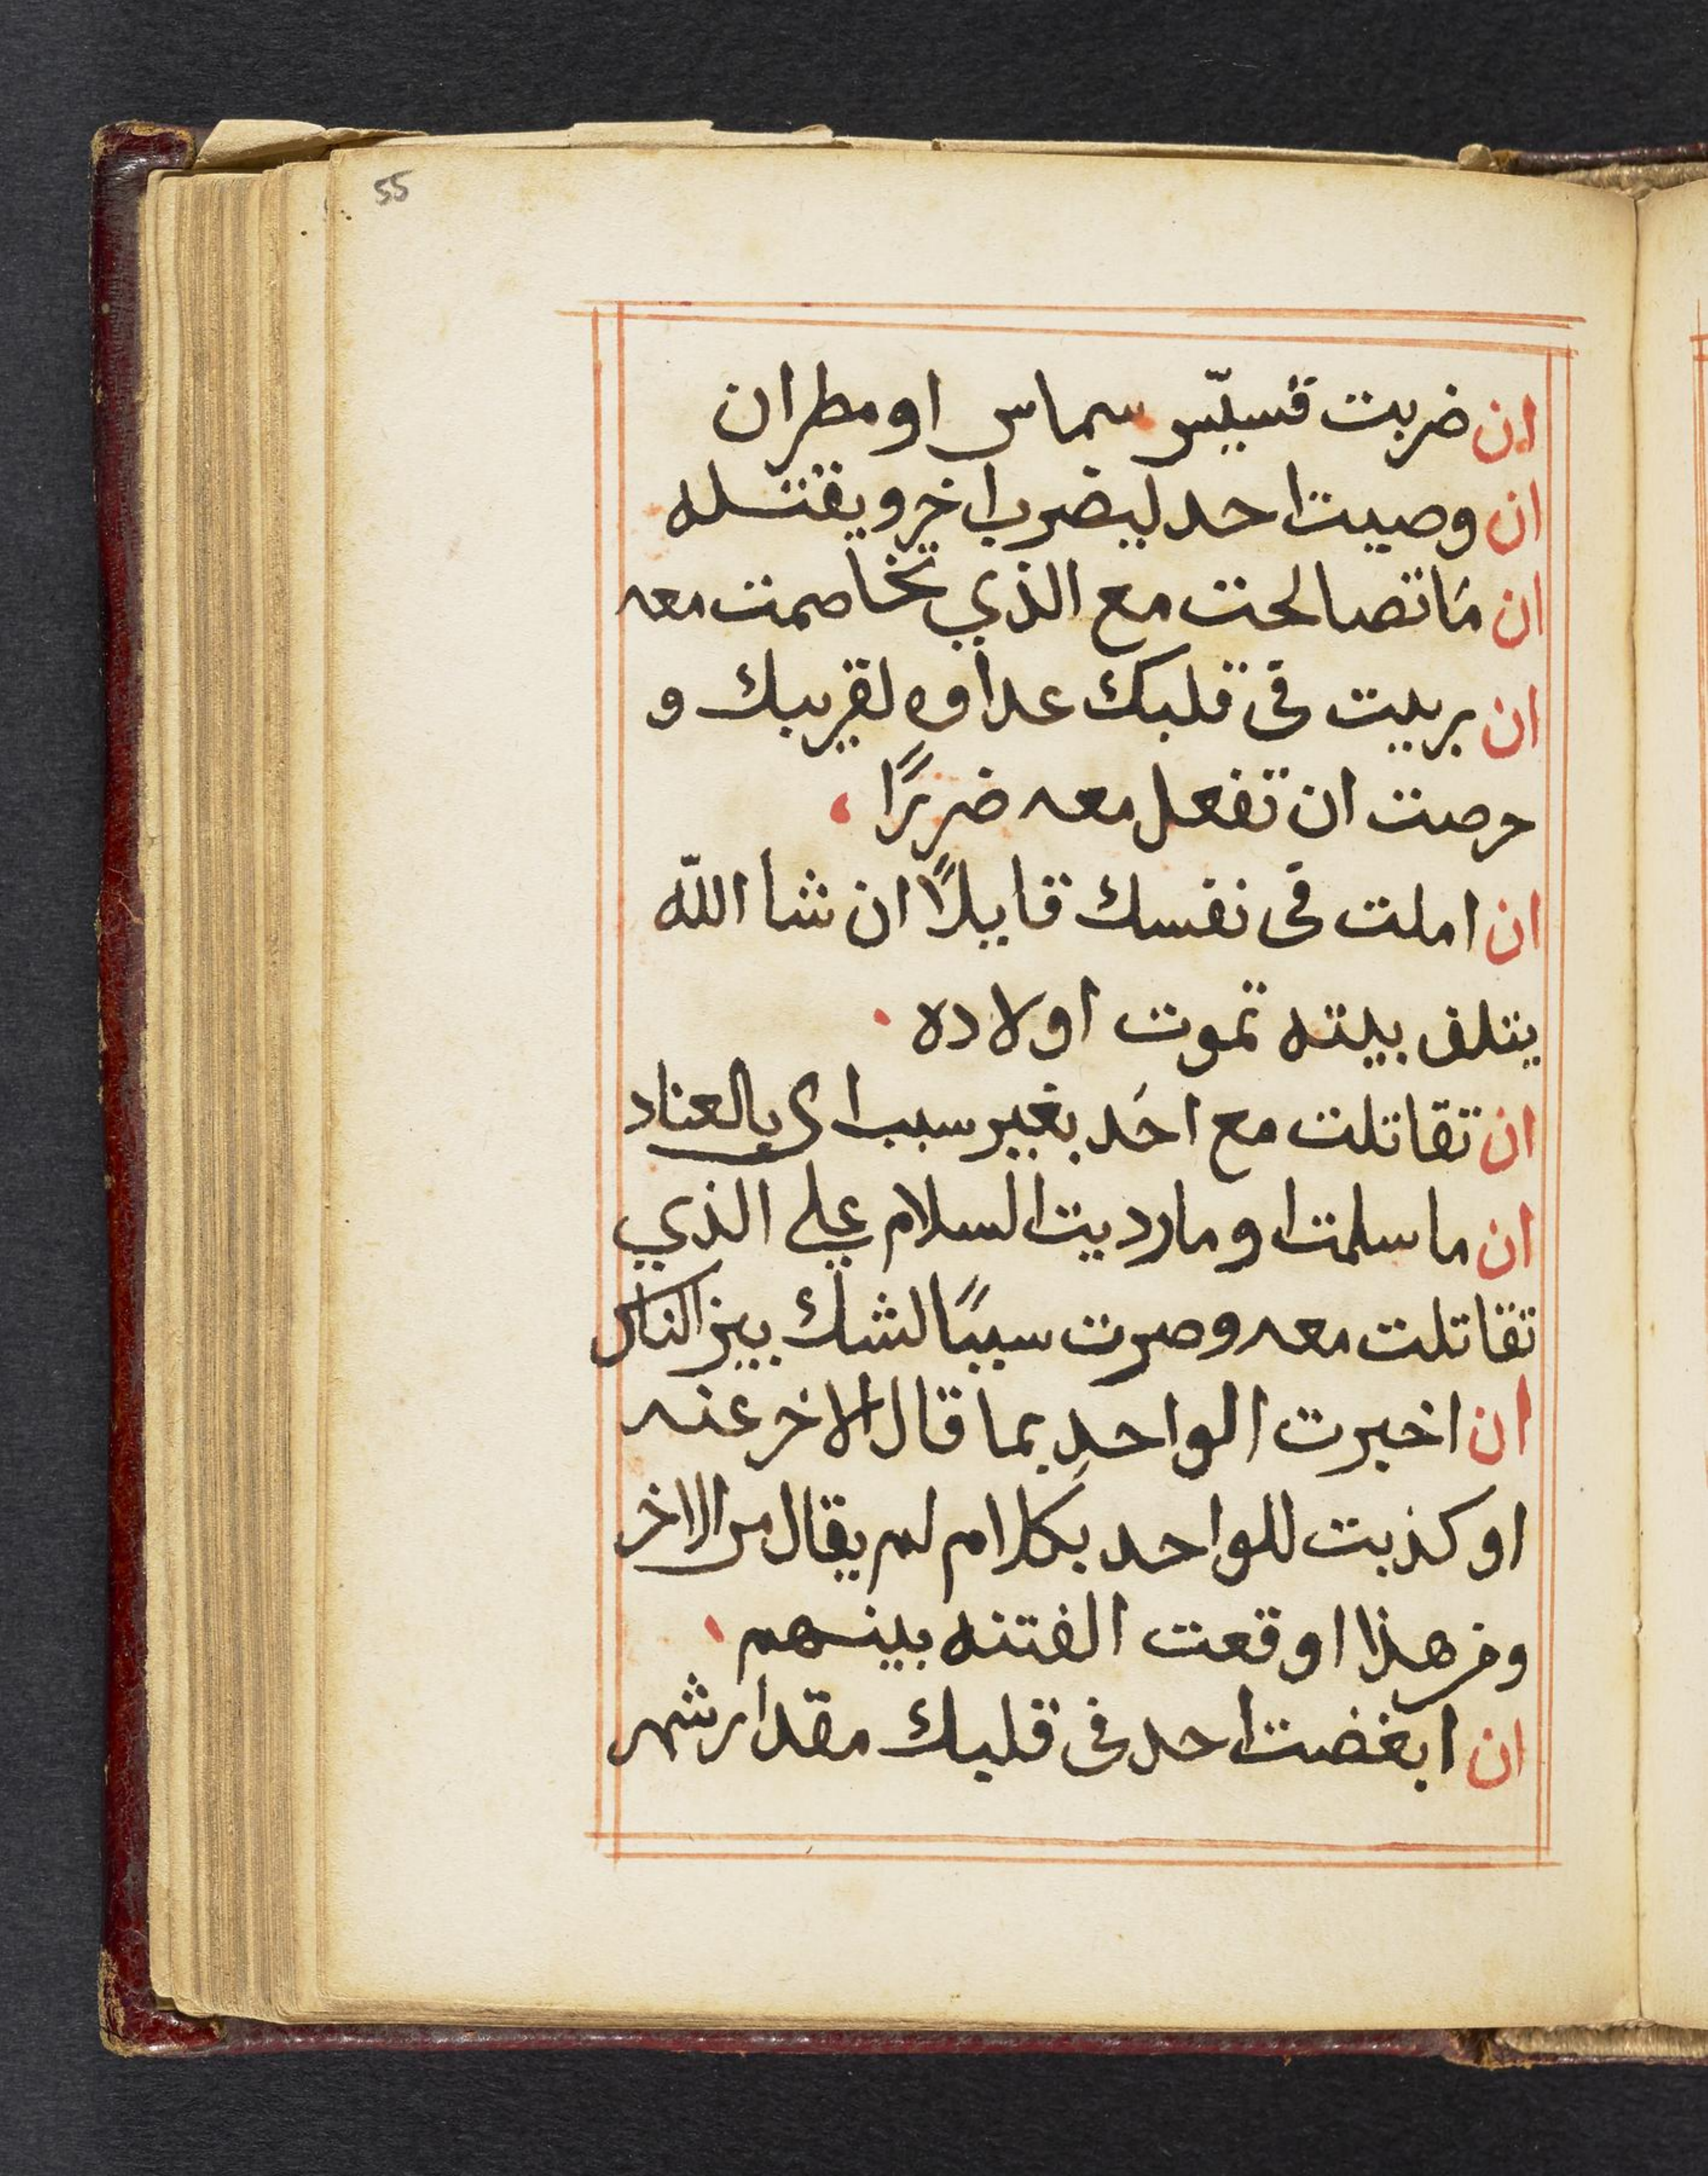 55
ان ضربت قسيّس سماس او مطران
ان وصيت احد ليضرب اخر ويقتله
ان مَا تصالحت مع الذي تخاصمت معه
ان ربيت في قلبك عداوه لقريبك و
حرصت ان تفعل معه ضررًا،
ان املت في نفسك قايلًا ان شا اللّه
يتلف بيته تموت اولاده.
ان تقاتلت مع احَد بغير سبب اى بالعناد
ان ما سلمت او ما رديت السلام علي الذي
تقاتلت معه وصرت سببًا لشك بين الناس
ان اخبرت الواحد بما قال الاخر عنه
او كذبت للواحد بكلام لم يقال من الاخر
ومن هذا اوقعت الفتنه بينهم،
ان ابغضت احد في قلبك مقدار شهر